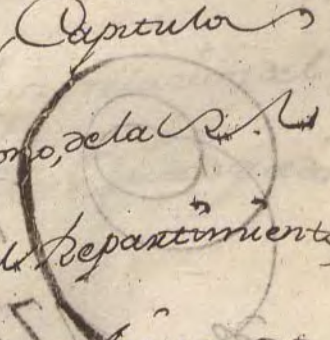 Capitula
ono, de la R.l
l Repartimiento